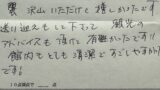 沢山いただけて 嬉しかったです
送り迎えもして下さって 観光の
アドバイスも頂けて 有難かったです!
館内もとても清潔ですごしやすかった
です。
10点満点で 点